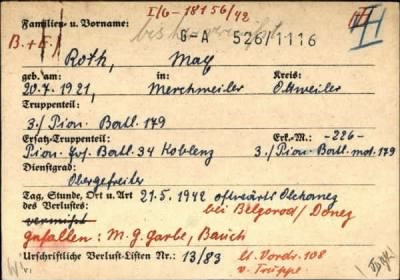 I/6-18156/42
Familien- u. Vorname:
bisher vermißt
G-A 526/1116
B.+E.
II
Roth, Max
geb. am: in: Kreis:
20.7.1921, Merchweiler Ottweiler
Truppenteil:
3./ Pion. Batl. 179
Ersatz-Truppenteil: Erk.-M.: -226-
Pion. Ers. Batl. 34 Koblenz 3./Pion. Batl. mot. 179
Dienstgrad:
Obergefreiter
Tag, Stunde, Ort u. Art 21.5.1942 ostwärts
des Verlustes: bei Belgorod/Donez
vermißt
gefallen: M.G. Garbe, Bauch
Urschriftliche Verlust-Listen Nr. 13/83 lt. Vordr. 108
v. Truppe